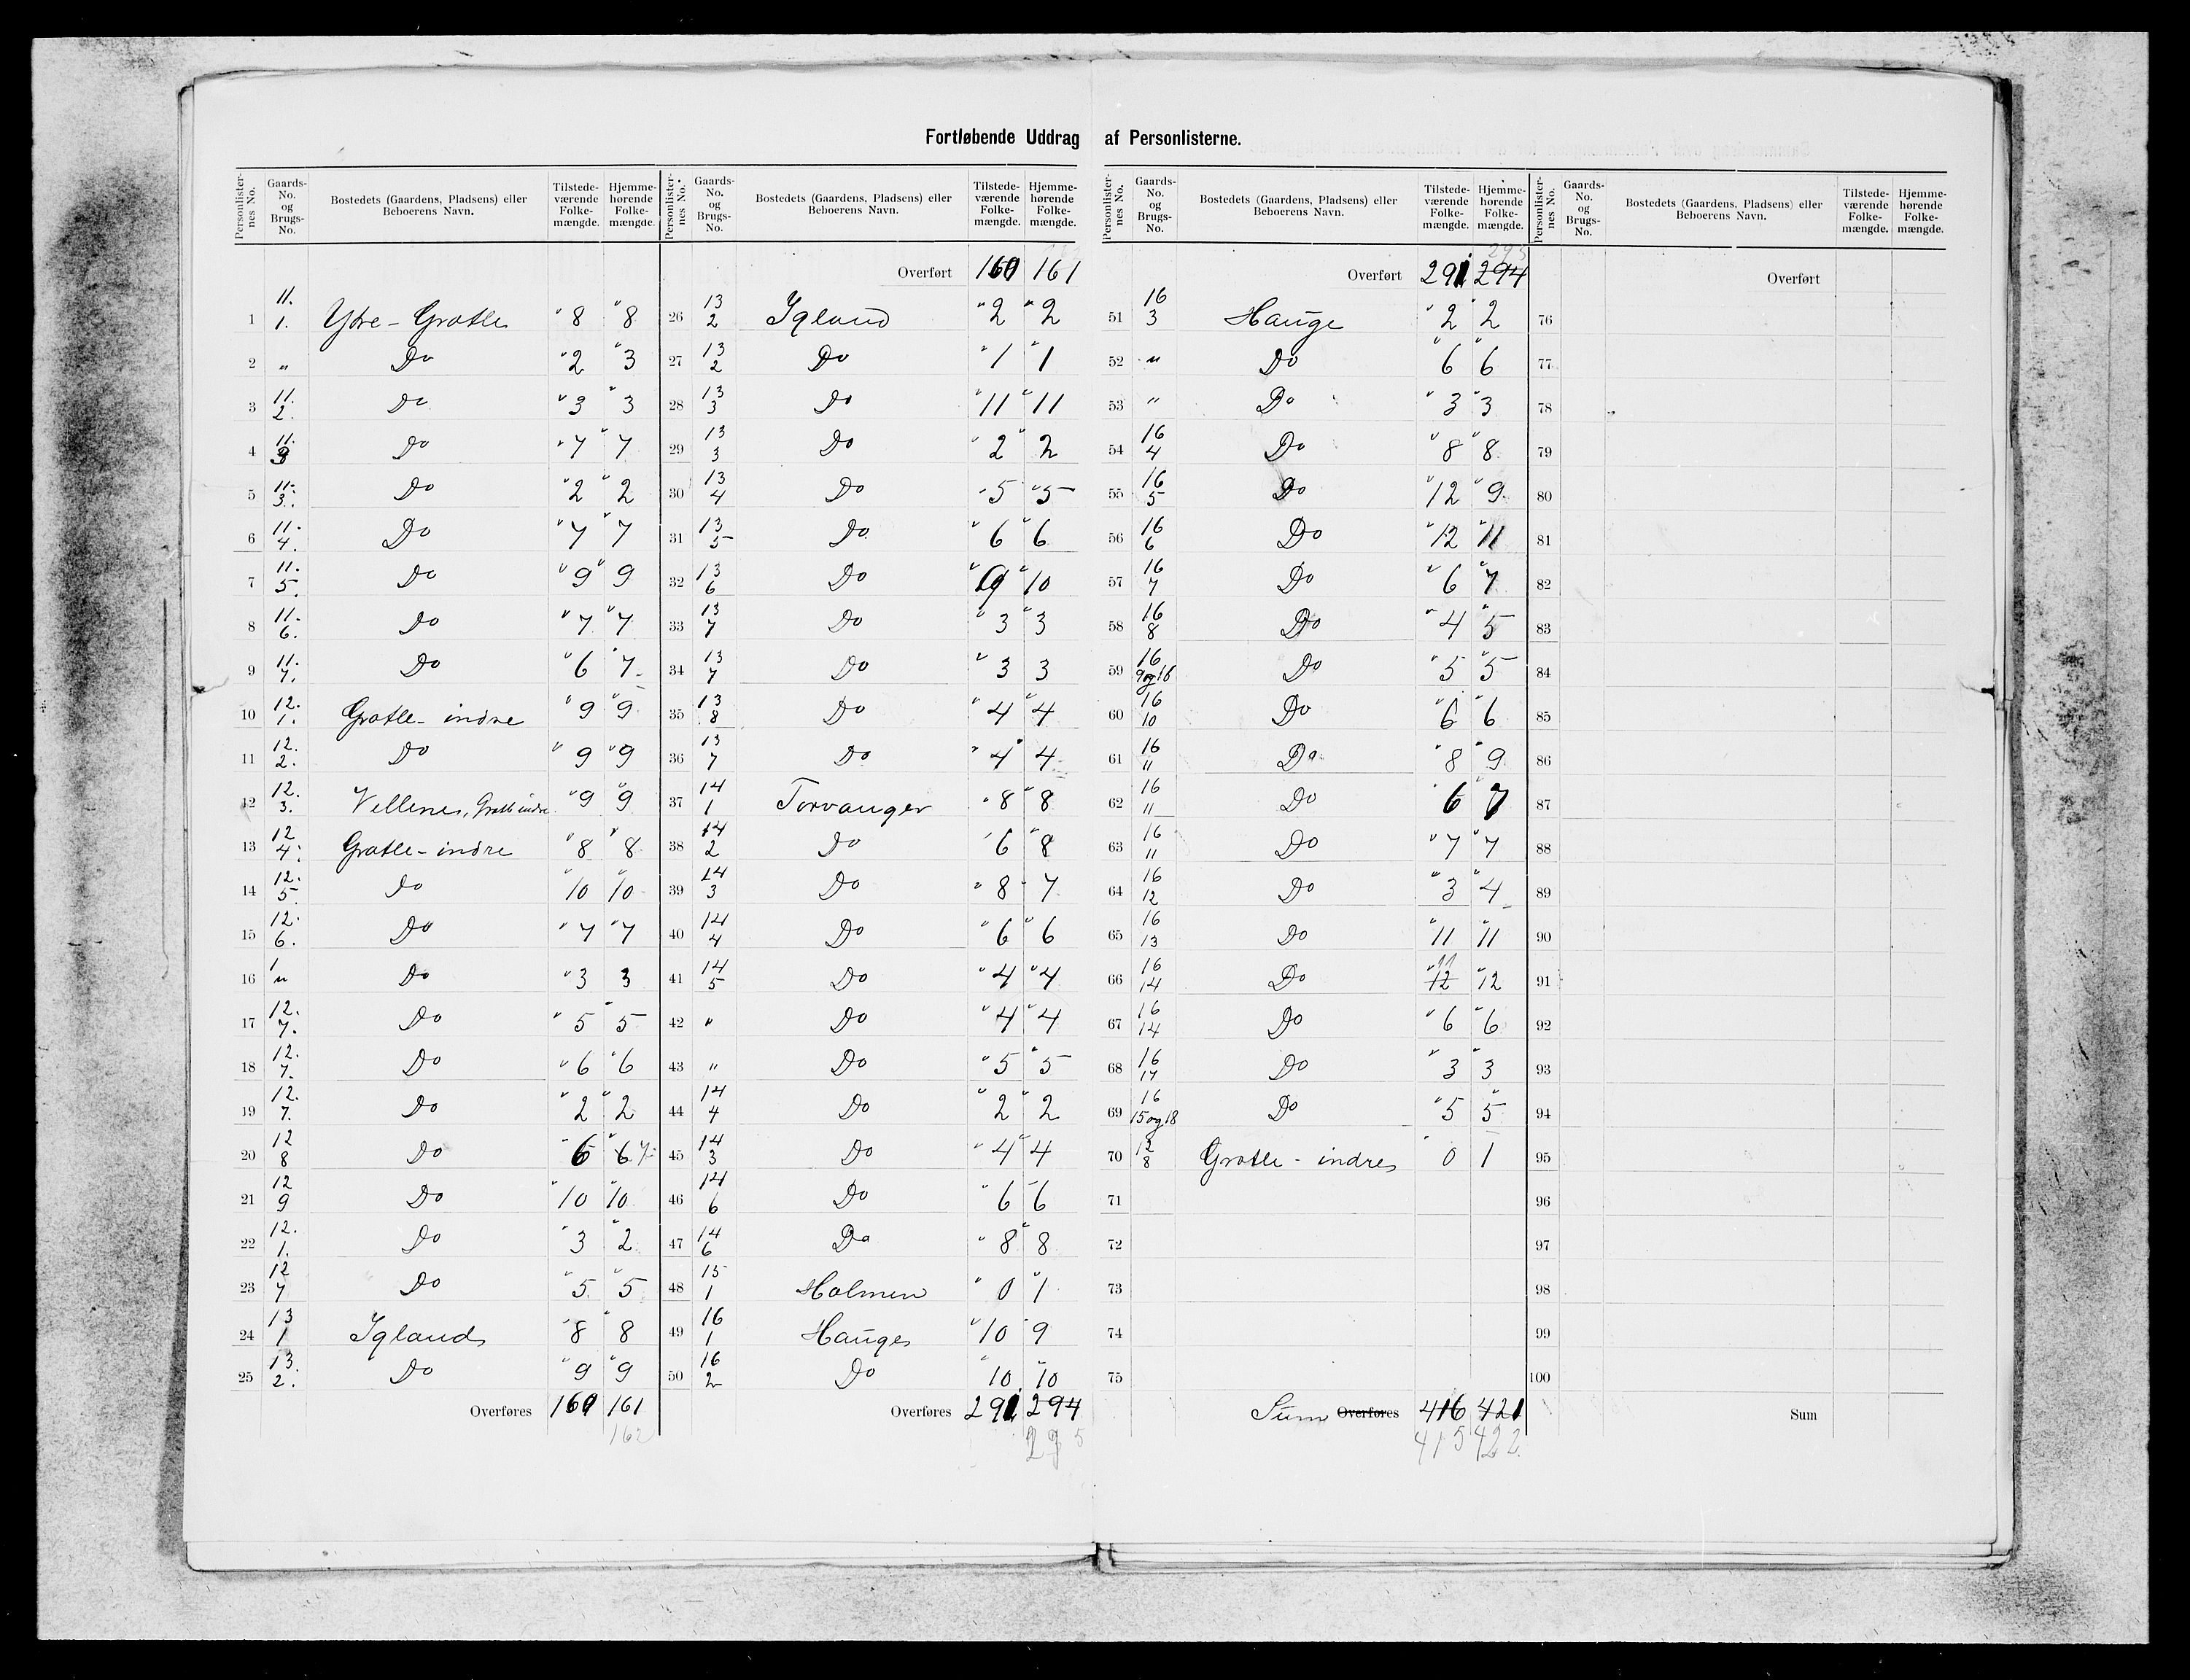 Fortløbende Uddrag af Personlisterne.
Personlisternes No. Gaards-No. og Brugs-No. Bostedets (Gaardens, Pladsens) eller Beboerens Navn. Tilstedeværende Folkemængde. Hjemmehørende Folkemængde.
1 11. 1. Ytre-Grotle " 8 " 8
2 " Do " 2 " 3
3 11. 2. Do " 3 " 3
4 11. 3 Do " 7 " 7
5 11. 3. Do " 2 " 2
6 11. 4. Do " 7 " 7
7 11. 5. Do " 9 " 9
8 11. 6. Do " 7 " 7
9 11. 7. Do " 6 " 7
10 12. 1. Grotle-indre " 9 " 9
11 12. 2. Do " 9 " 9
12 12. 3. Vellenes, Grotle indre " 9 " 9
13 12 4. Grotle-indre " 8 " 8
14 12. 5. Do " 10 " 10
15 12. 6. Do " 7 " 7
16 " Do " 3 3
17 12. 7. Do " 5 " 5
18 12. 7. Do " 6 " 6
19 12. 7. Do " 2 " 2
20 12 8 Do " 6 " 6 7
21 12 9 Do " 10 " 10
22 12. 1. Do " 3 " 2
23 12 7 Do " 5 " 5
24 13 1 Igland " 8 " 8
25 13. 2. Do " 9 " 9
Overføres 160 161
162
Personlisternes No. Gaards-No. og Brugs-No. Bostedets (Gaardens, Pladsens) eller Beboerens Navn. Tilstedeværende Folkemængde. Hjemmehørende Folkemængde.
Overført 160 161
26 13 2 Igland " 2 " 2
27 13 2 Do " 1 " 1
28 13 3 Do " 11 " 11
29 13 3 Do " 2 " 2
30 13 4 Do " 5 " 5
31 13 5 Do " 6 " 6
32 13 6 Do " 9 " 10
33 13 7 Do " 3 " 3
34 13 7 Do " 3 3
35 13 8 Do " 4 " 4
36 13 7 Do " 4 " 4
37 14 1 Torvanger " 8 " 8
38 14 2 Do " 6 " 8
39 14 3 Do " 8 " 7
40 14 4 Do " 6 " 6
41 14 5 Do " 4 " 4
42 " Do " 4 " 4
43 " Do " 5 " 5
44 14 4 Do " 2 " 2
45 14 3 Do " 4 " 4
46 14 6 Do " 6 " 6
47 14 6 Do " 8 " 8
48 15 1 Holmen " 0 " 1
49 16 1 Hauge " 10 " 9
50 16 2 Do " 10 " 10
Overføres 291 294
295
Personlisternes No. Gaards-No. og Brugs-No. Bostedets (Gaardens, Pladsens) eller Beboerens Navn. Tilstedeværende Folkemængde. Hjemmehørende Folkemængde.
295
Overført 291 294
51 16 3 Hauge " 2 " 2
52 " Do " 6 " 6
53 " Do " 3 " 3
54 16 4 Do " 8 " 8
55 16 5 Do " 12 " 9
56 16 6 Do " 12 " 11
57 16 7 Do " 6 " 7
58 16 8 Do " 4 " 5
59 16 9 og 16 Do " 5 " 5
60 16 10 Do " 6 " 6
61 16 11 Do " 8 " 9
62 16 11 Do " 6 " 7
63 16 11 Do " 7 " 7
64 16 12 Do " 3 " 4
65 16 13 Do " 11 " 11
66 16 14 Do " 11 12 " 12
67 16 14 Do " 6 " 6
68 16 17 Do " 3 " 3
69 16 15 og 18 Do " 5 " 5
70 12 8 Grotle-indre " 0 1
71
72
73
74
75
Sum Overføres 416 421
415 422
Personlisternes No. Gaards-No. og Brugs-No. Bostedets (Gaardens, Pladsens) eller Beboerens Navn. Tilstedeværende Folkemængde. Hjemmehørende Folkemængde.
Overført
76
77
78
79
80
81
82
83
84
85
86
87
88
89
90
91
92
93
94
95
96
97
98
99
100
Sum